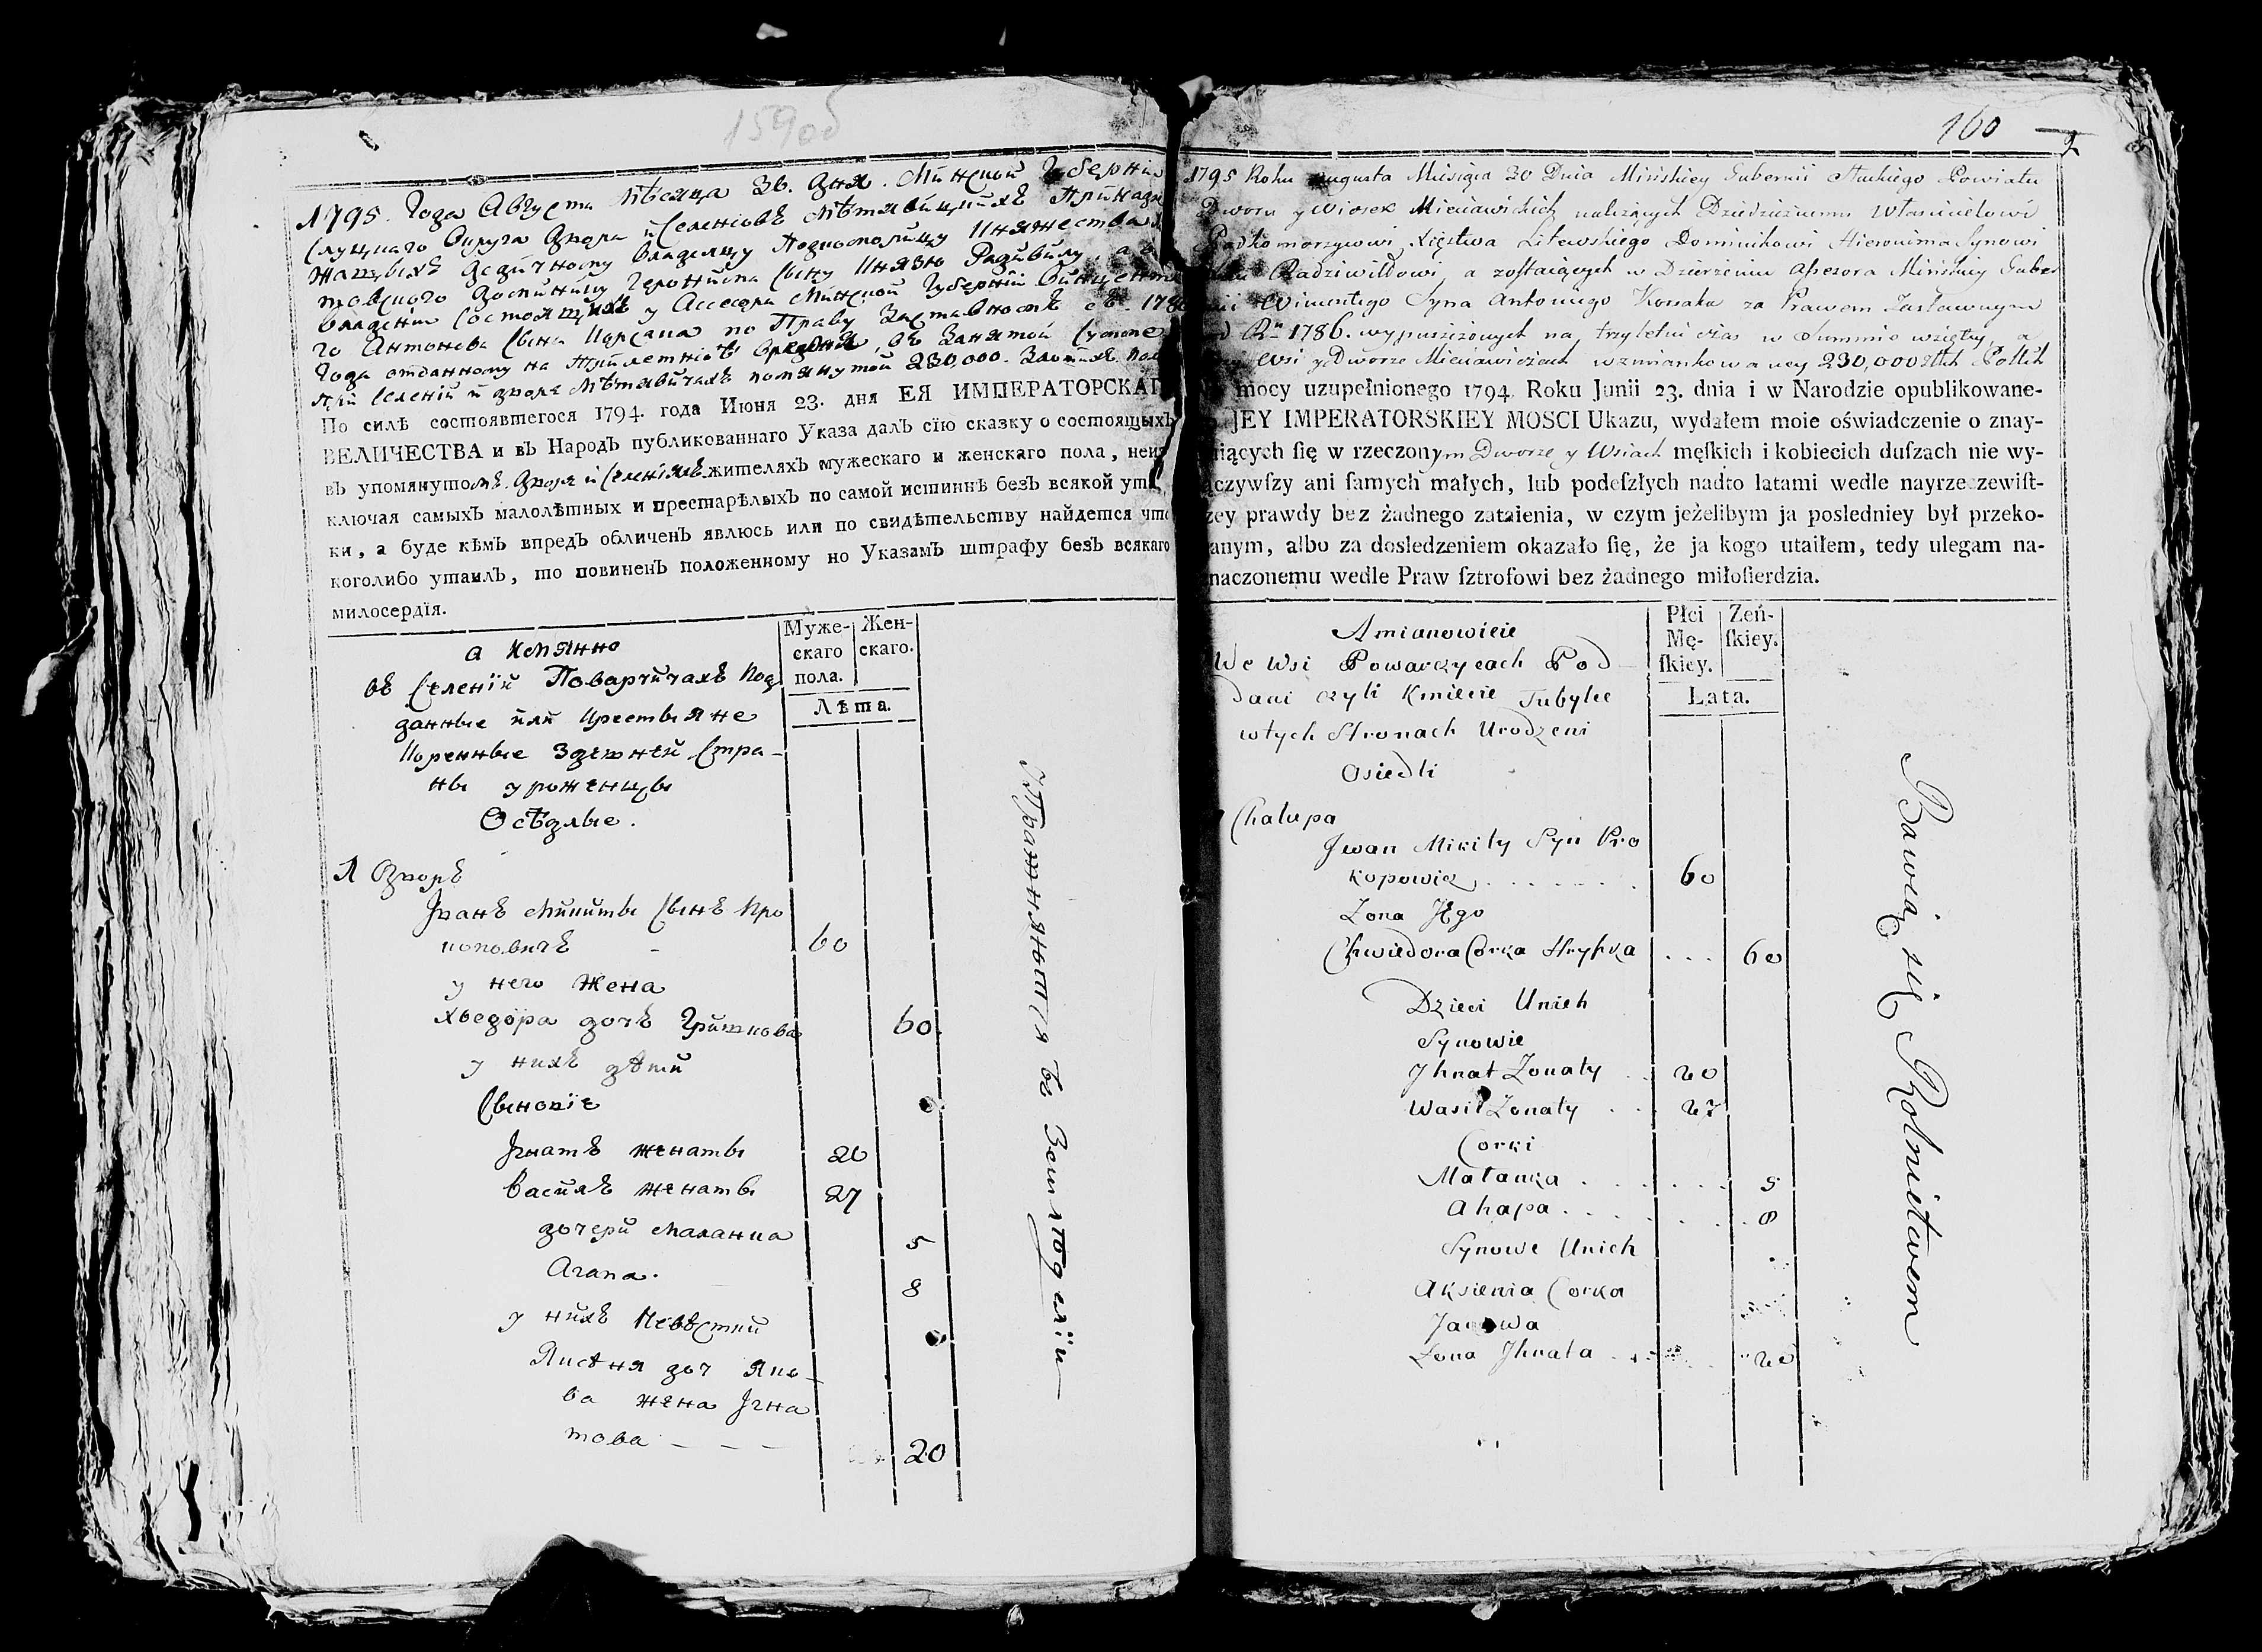 159об
1795. Года Августа Мѣсяца 30. дня. Минской Губерніи
Слуцкаго Округа Двора и Селеніовъ Мѣтявицкихъ Принадле
жащихъ Дедичному владелцу Подкоморицу Княжества
товского Доминику Геронима Сыну Князю Радивилу, а во
владеніи состоящихъ у Ассесора Минской Губерніи Винценто
го Антонова Сына Корсака по Праву Заставномъ съ 1786
Года отданному на Трилетніе время, въ Занятой Суммѣ
при Селеніи и дворѣ Мѣтявичахъ помянутой 230,000. Злотыхъ Пол
По силѣ состоявшегося 1794. года Июня 23. дня ЕЯ ИМПЕРАТОРСКАГ
ВЕЛИЧЕСТВА и въ Народъ публикованнаго Указа далъ сїю сказку о состоящыхъ
въ упомянутомъ Дворѣ и Селеніяхъ жителяхъ мужескаго и женскаго пола, неис
ключая самыхъ малолѣтныхъ и престарѣлыхъ по самой истиннѣ безъ всякой ута
ки, а буде кѣмъ впредъ обличенъ явлюсь или по свидѣтельству найдется что
коголибо утаилъ, то повиненъ положенному но Указамъ штрафу безъ всякаго
милосердїя.
Муже-
скаго
пола.
Жен-
скаго.
Лѣта.
а имянно
въ Селеніи Поварчичахъ Под
данные или Крестьяне
Коренные Здешней Стра-
ны уроженцы
Осѣдлые.
1 Дворъ
Іванъ Микиты Сынъ Про
коповичъ - 60
у него Жена
Хведора дочъ Гришкова 60.
у нихъ дѣти
Сыновіе
Ігнатъ женаты 20
Василь женаты 27
дочери Маланка 5
Агапа. 8
у нихъ Невѣстки
Яксѣня доч Яко-
ва жена Ігна
това - - - 20
Упражняются въ Земледеліи
160
2
1795 Roku Augusta Miesiąca 30 Dnia Mińskiey Gubernii Słuckiego Powiatu
Dworu y Wiosek Mieciawickich należących Dziedzicznemu Włascicielowi
Podkomorzycowi Xięstwa Litewskiego Dominikowi Hieronima Synowi
Radziwiłłowi, a zostaiących w Dzierżeniu Assesora Mińskiey Guber
nii Wincentego Syna Antoniego Korsaka za Prawem Zastawnym
od Ru 1786. wypuszczonych na trzyletni czas w Summie wziętey, a
Wsi y Dworze Mieciawiczach wzmiankowaney 230,000 Złłch Polskch
mocy uzupełnionego 1794. Roku Junii 23. dnia i w Narodzie opublikowane-
JEY IMPERATORSKIEY MOSCI Ukazu, wydałem moie oświadczenie o znay-
niących ſię w rzeczonym Dworze y Wsiach męſkich i kobiecich duſzach nie wy-
czywſzy ani ſamych małych, lub podeſzłych nadto latami wedle nayrzeczewiſt-
zey prawdy bez żadnego zataienia, w czym jeżelibym ja posledniey był przeko-
anym, albo za dosledzeniem okazało ſię, że ja kogo utaiłem, tedy ulegam na-
naczonemu wedle Praw ſztrofowi bez żadnego miłoſierdzia.
Płci
Mę-
ſkiey.
Zeń-
ſkiey.
Lata.
Amianowicie
We Wsi Powarczycach Pod-
dani czyli Kmiecie Tubylce
wtych Stronach Urodzeni
Osiedli
Chalupa
Jwan Mikity Syn Pro
kopowicz . . . . . . 60
Zona Jego
Chwiedora Corka Hryszka . . . 60
Dzieci Unich
Synowie
Jhnat Zonaty . . 20
Wasil Zonaty . . 27
Corki
Malanka . . . . . . 5
Ahapa . . . . . . . 8
Synowe Unich
Aksienia Corka
Jakowa
Zona Jhnata . . . . 20
Bawią się Rolnictwem